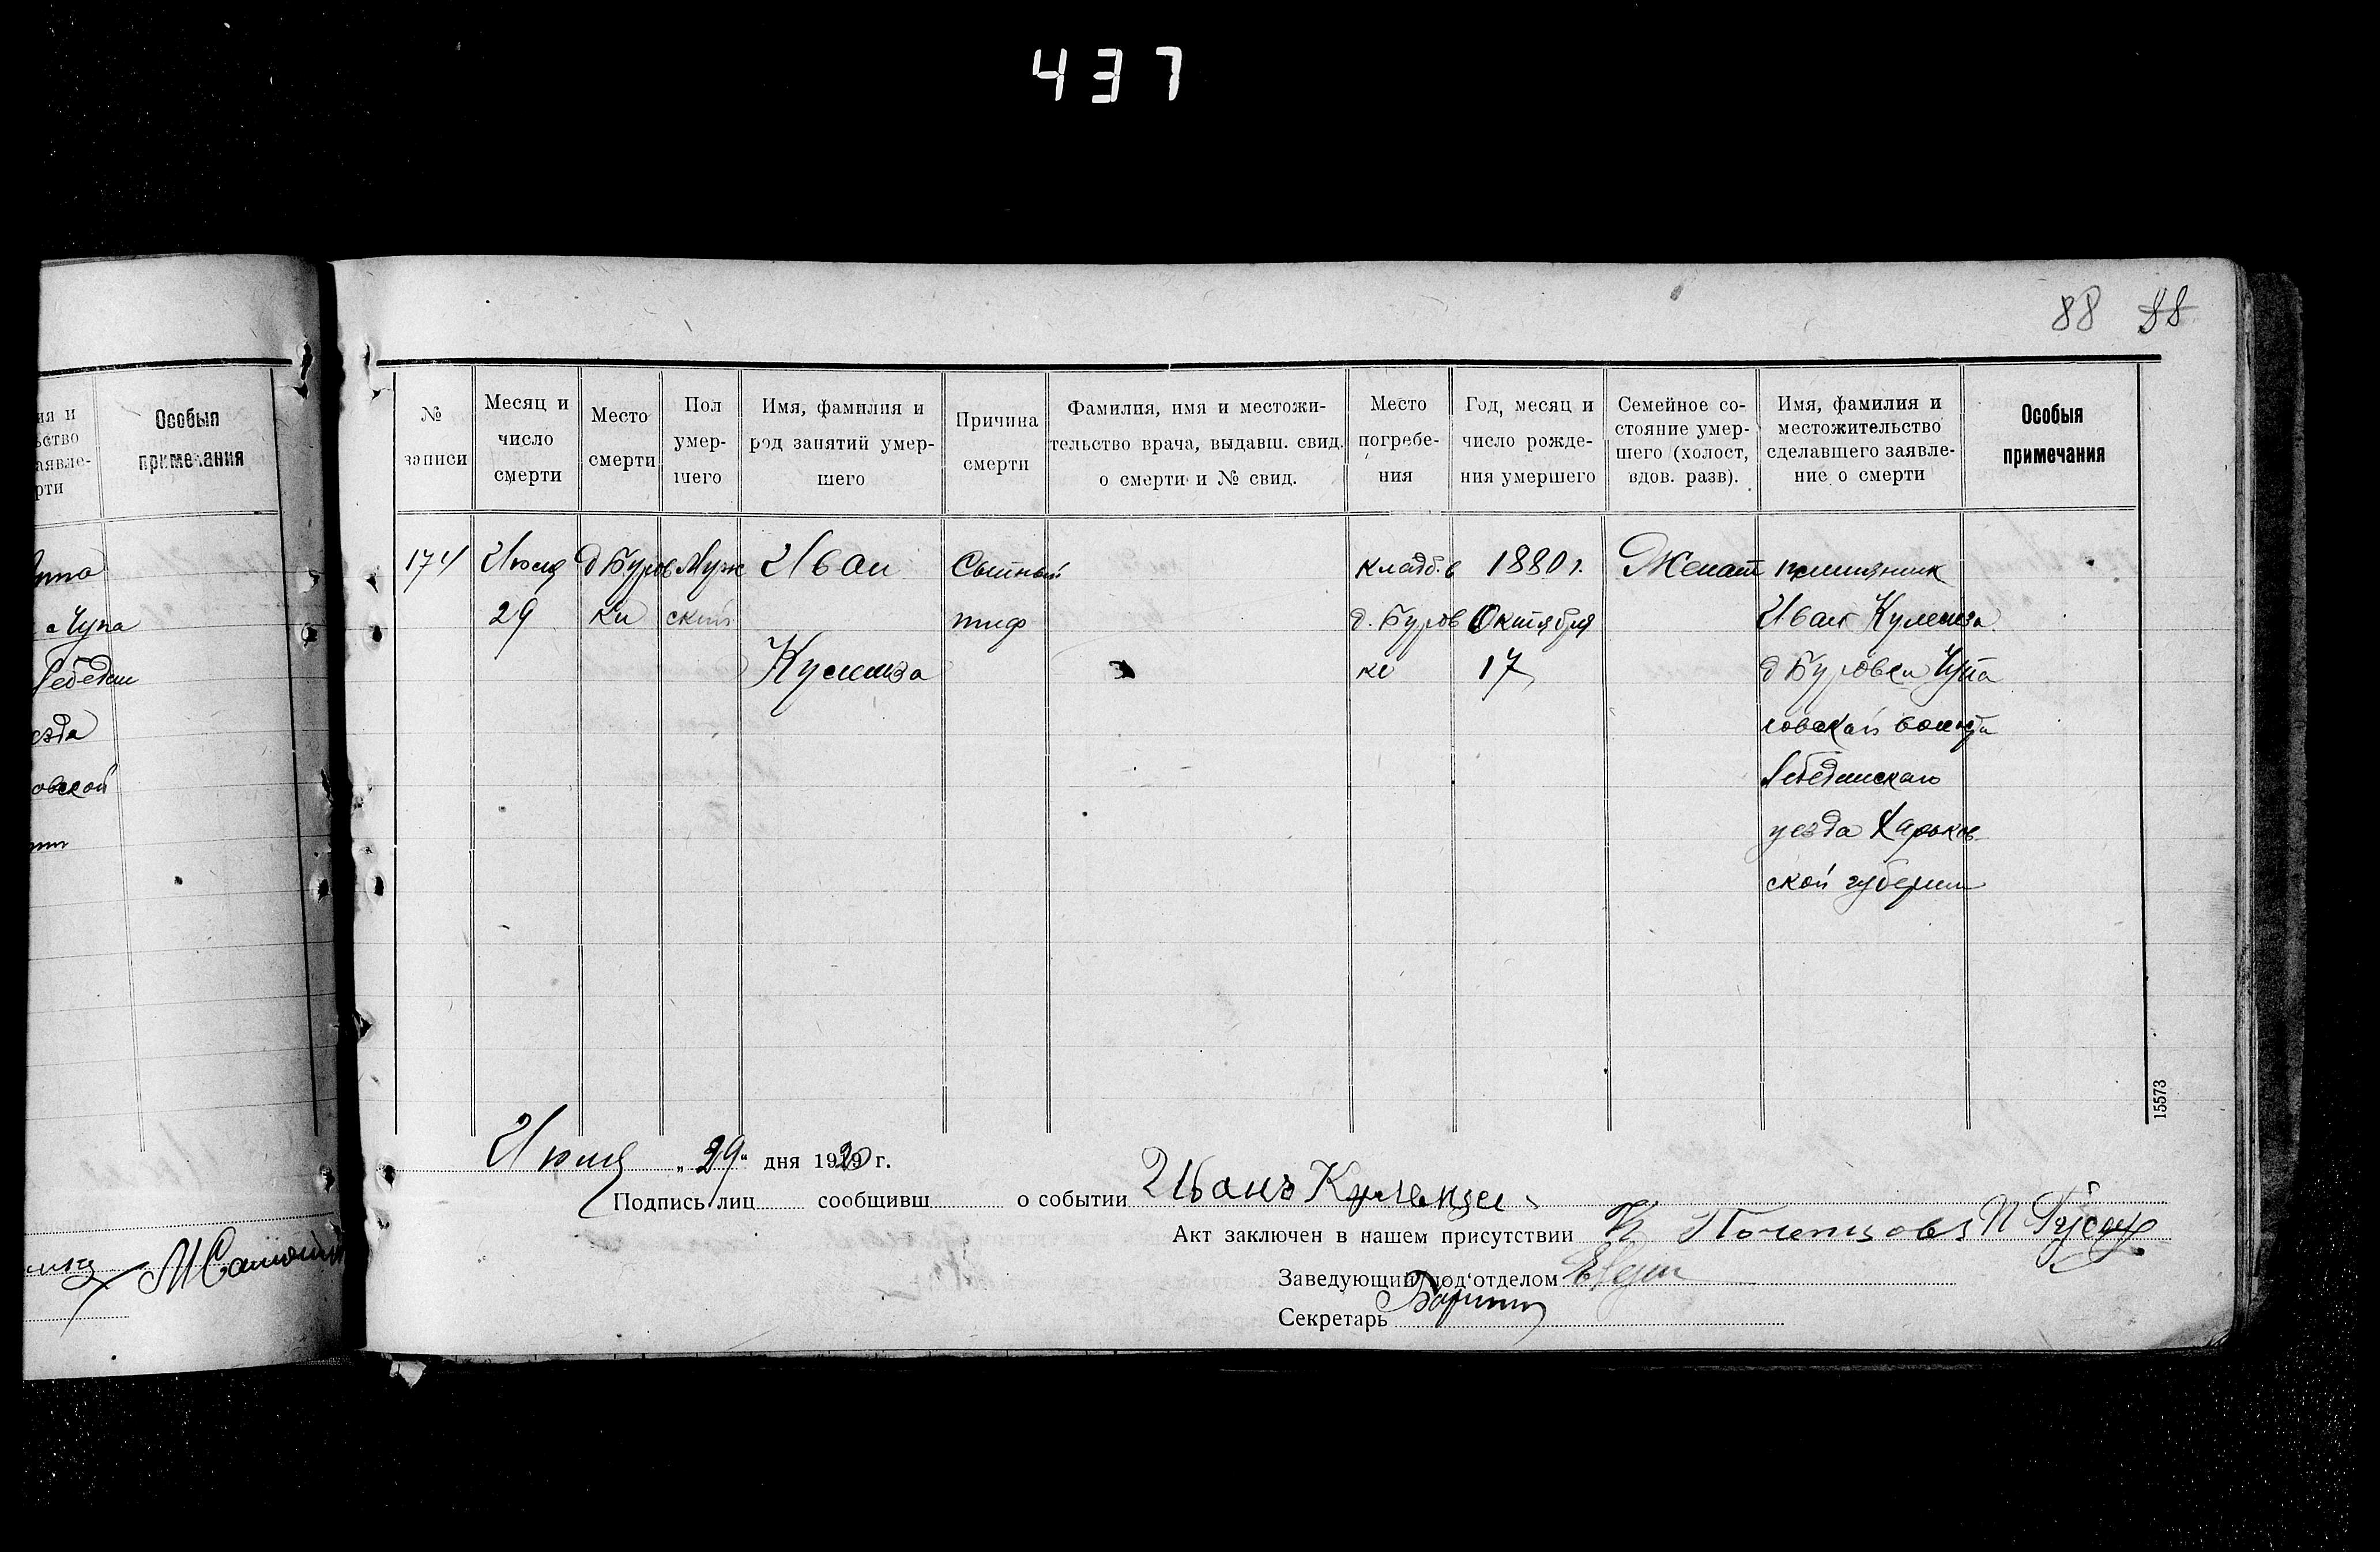 437
88 88
ия и
ство
аявле-
рти
Особыя
примечания
а Чупа
Лебедин
езда
овской
№
записи
Месяц и
число
смерти
Место
смерти
Пол
умер-
шего
Имя, фамилия и
род занятий умер-
шего
Причина
смерти
Фамилия, имя и местожи-
тельство врача, выдавш. свид.
о смерти и № свид.
Место
погребе-
ния
Год, месяц и
число рожде-
ния умершего
Семейное со-
стояние умер-
шего (холост,
вдов. разв).
Имя, фамилия и
местожительство
сделавшего заявле-
ние о смерти
Особыя
примечания
174
Июля
29
д Буров
ки
Муж
ской
Иван
Сыпный
тиф
кладб. в
д. Буров
ке
1880 г.
Октября
17
Женат
племянник
Иван
д Буровки Чупа
ховской волости
Лебединскаго
уезда Харьков
ской губернии
Июля „29“ дня 1920 г.
Подпись лиц сообщивш о событии Иванъ
Акт заключен в нашем присутствии
Заведующий под'отделом
Секретарь
15573